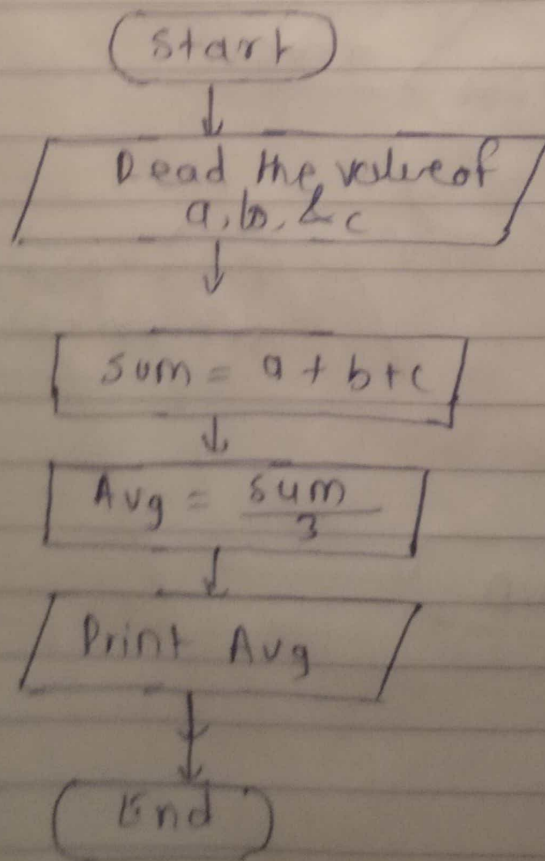 Start
Dead the value of
a, b, & c
sum = a + b + c
Avg = sum
3
Print Avg
End